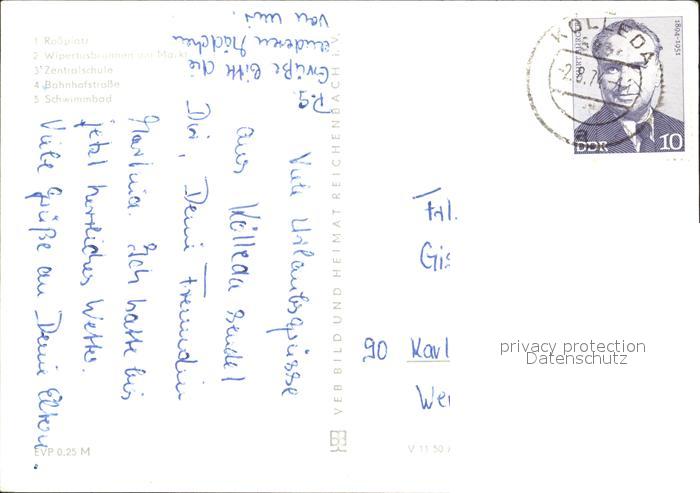 1 Roßplatz
2 Wipertusbrunnen am Markt
3 Zentralschule
4 Bahnhofstraße
5 Schwimmbad
Viele Urlaubsgrüsse
aus Kölleda sendet
Dir, Deine Freundin
Martina. Ich hatte bis
jetzt herrliches Wetter.
Viele Grüße an Deine Eltern.
P.S.
Grüße bitte die
anderen Mädchen
von mir.
EVP 0,25 M
VEB BILD UND HEIMAT REICHENBACH i. V.
V 11 50
KÖLLEDA
a
1894-1951
DDR 10
Frl.
Gis
90 Karl
Wer
privacy protection
Datenschutz